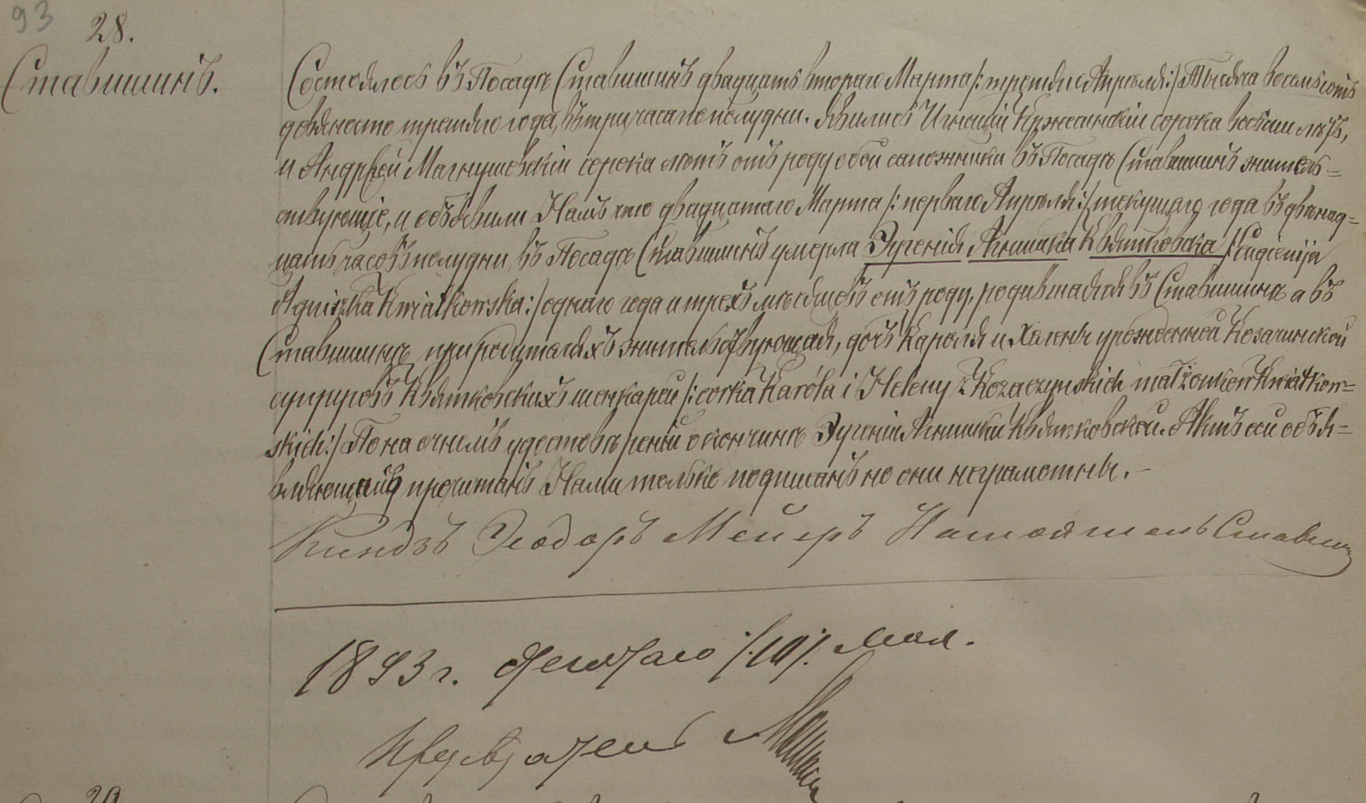 93
28.
Ставишинъ.
Состоялось въ Посадѣ Ставишинѣ двадцать втораго Марта /:третьяго Апрѣля:/ Тысяча восемьсотъ
девяносто третьяго года, въ три часа по полудни. Явились Игнацій сорока восьми лѣтъ,
и Андрей Магнушевскій сорока лѣтъ отъ роду обои сапожники въ Посадѣ Ставишинѣ житель=
ствующіе, и объявили Намъ что двадцатаго Марта /:перваго Апрѣля:/ текущаго года въ двѣнад-
цать часовъ полудни, въ Посадѣ Ставишинѣ умерла Эугенія Агнишка Квятковска /:Eugienija
Agniszka Kwiatkowska:/ однаго года и трехъ мѣсяцевъ отъ роду, родившаяся въ Ставишинѣ а въ
Ставишинѣ при родителяхъ жительствующая, дочь Кароля и Халены урожденной Козачинской
супруговъ Квятковскихъ /:corka Karóla i Heleny z Kozaczynskich małżonkow Kwiatkow-
skich:/ По на очномъ удостовѣреніи о кончинѣ Эугеніи Агнишки Квятковской. Актъ сей объя=
вляющимъ прочитанъ Нами только подписанъ но они неграмотны. –
Ксендзъ Теодоръ Мейеръ Настоятель
1893 г. /:10/. Мая.
29